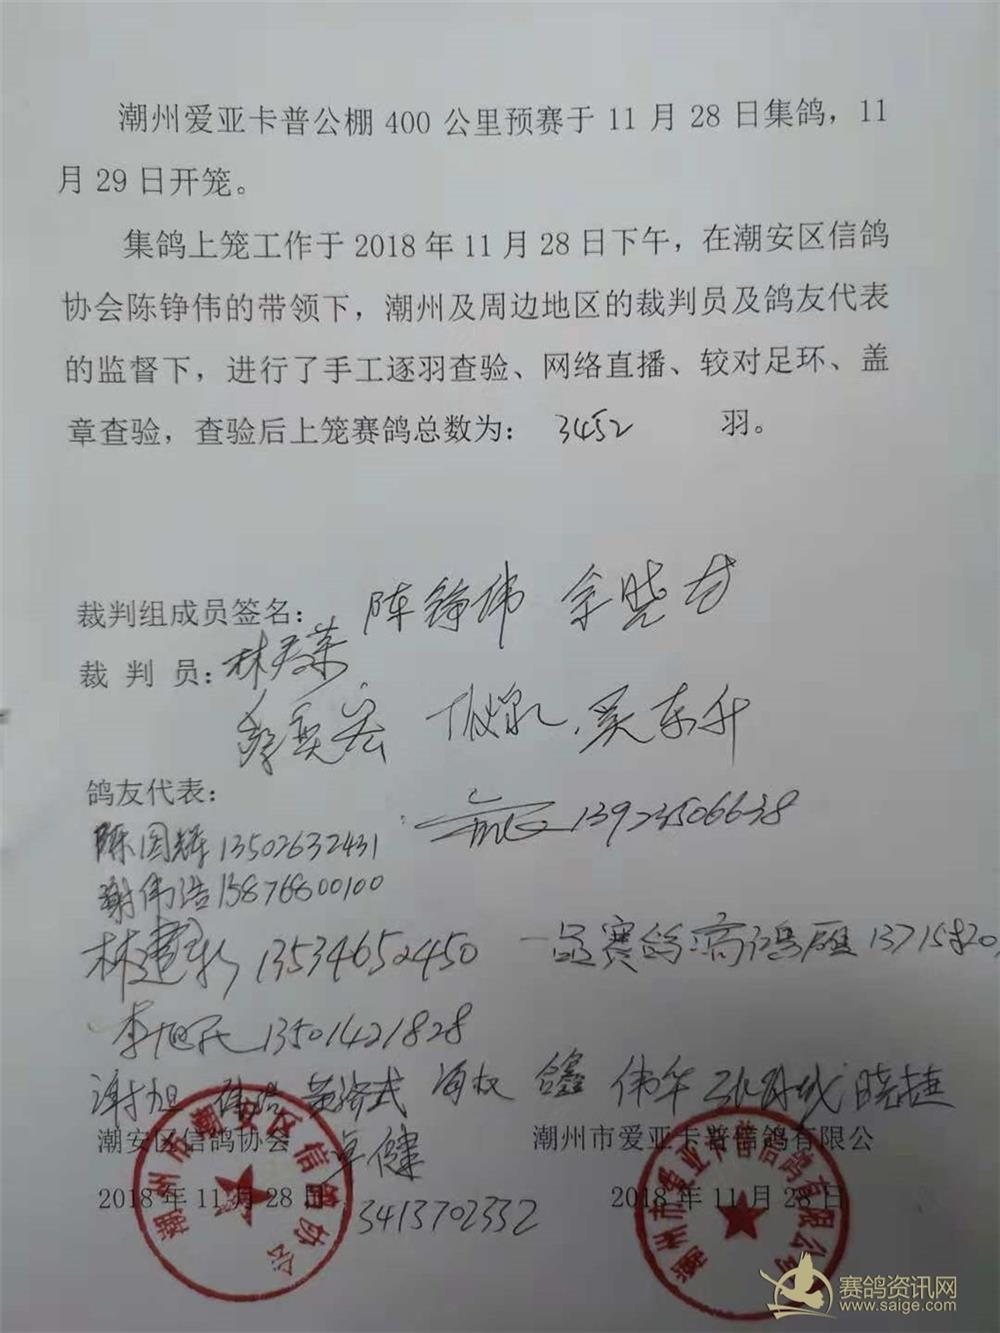 潮州爱亚卡普公棚 400 公里预赛于 11 月 28 日集鸽，11
月 29 日开笼。
集鸽上笼工作于 2018 年 11 月 28 日下午，在潮安区信鸽
协会陈铮伟的带领下，潮州及周边地区的裁判员及鸽友代表
的监督下，进行了手工逐羽查验、网络直播、较对足环、盖
章查验，查验后上笼赛鸽总数为： 3452 羽。
裁判组成员签名： 陈铮伟
裁 判 员：
吴东升
鸽友代表：
13923506638
陈国辉 13502632431
谢伟浩 13876800100
林建彬 13534652450
一品赛鸽 13715820
李旭 13501421828
谢旭 伟浩 海权 鑫 伟华 晓捷
潮安区信鸽协会
潮州市爱亚卡普信鸽有限公
卓健
2018 年 11 月 28 日
2018 年 11 月 28 日
3413702332
潮州市潮安区信鸽协会
潮州市爱亚卡普信鸽有限公司
赛鸽资讯网
www.saige.com